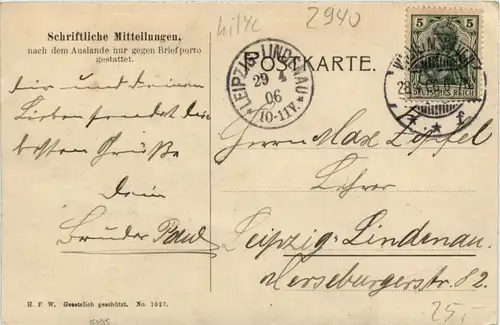 hilyc
2940
Schriftliche Mitteilungen,
nach dem Auslande nur gegen Briefporto
gestattet.
POSTKARTE.
5 5
DEUTSCHES REICH
LEIPZIG-LINDENAU
29 4
06
10-11V.
* * f
Dir und Deinen
Lieben sendet die
besten Grüße
Dein
Bruder Paul
Herrn Max Zöpfel
Lehrer
Leipzig-Lindenau.
Merseburgerstr. 82.
H. F. W. Gesetzlich geschützt. No. 1027.
25,-